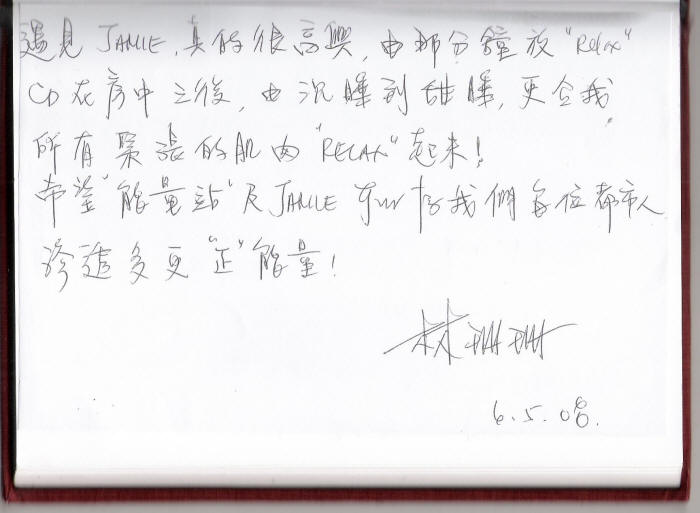 遇見 JAMIE, 真的很高興, 由 部分鐘放 "Relax"
CD 在房中之後, 由沉睡到甜睡, 更令我
所有緊張的肌肉 "RELAX" 起來!
希望 "能量站" 及 JAMIE 我們每位都市人
多更 "正" 能量!
林珊珊
6.5.08.